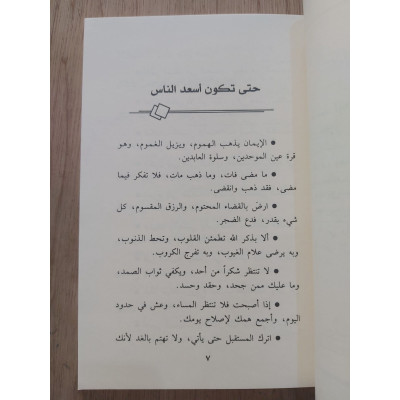 حتى تكون أسعد الناس
• الإيمان يذهب الهموم، ويزيل الغموم، وهو
قرة عين الموحدين، وسلوة العابدين.
• ما مضى فات، وما ذهب مات، فلا تفكر فيما
مضى، فقد ذهب وانقضى.
• ارضَ بالقضاء المحتوم، والرزق المقسوم، كل
شيء بقدر، فدع الضجر.
• ألا بذكر الله تطمئن القلوب، وتحط الذنوب،
وبه يرضى علام الغيوب، وبه تفرج الكروب.
• لا تنتظر شكراً من أحد، ويكفي ثواب الصمد،
وما عليك ممن جحد، وحقد وحسد.
• إذا أصبحت فلا تنتظر المساء، وعش في حدود
اليوم، وأجمع همك لإصلاح يومك.
• اترك المستقبل حتى يأتي، ولا تهتم بالغد لأنك
٧